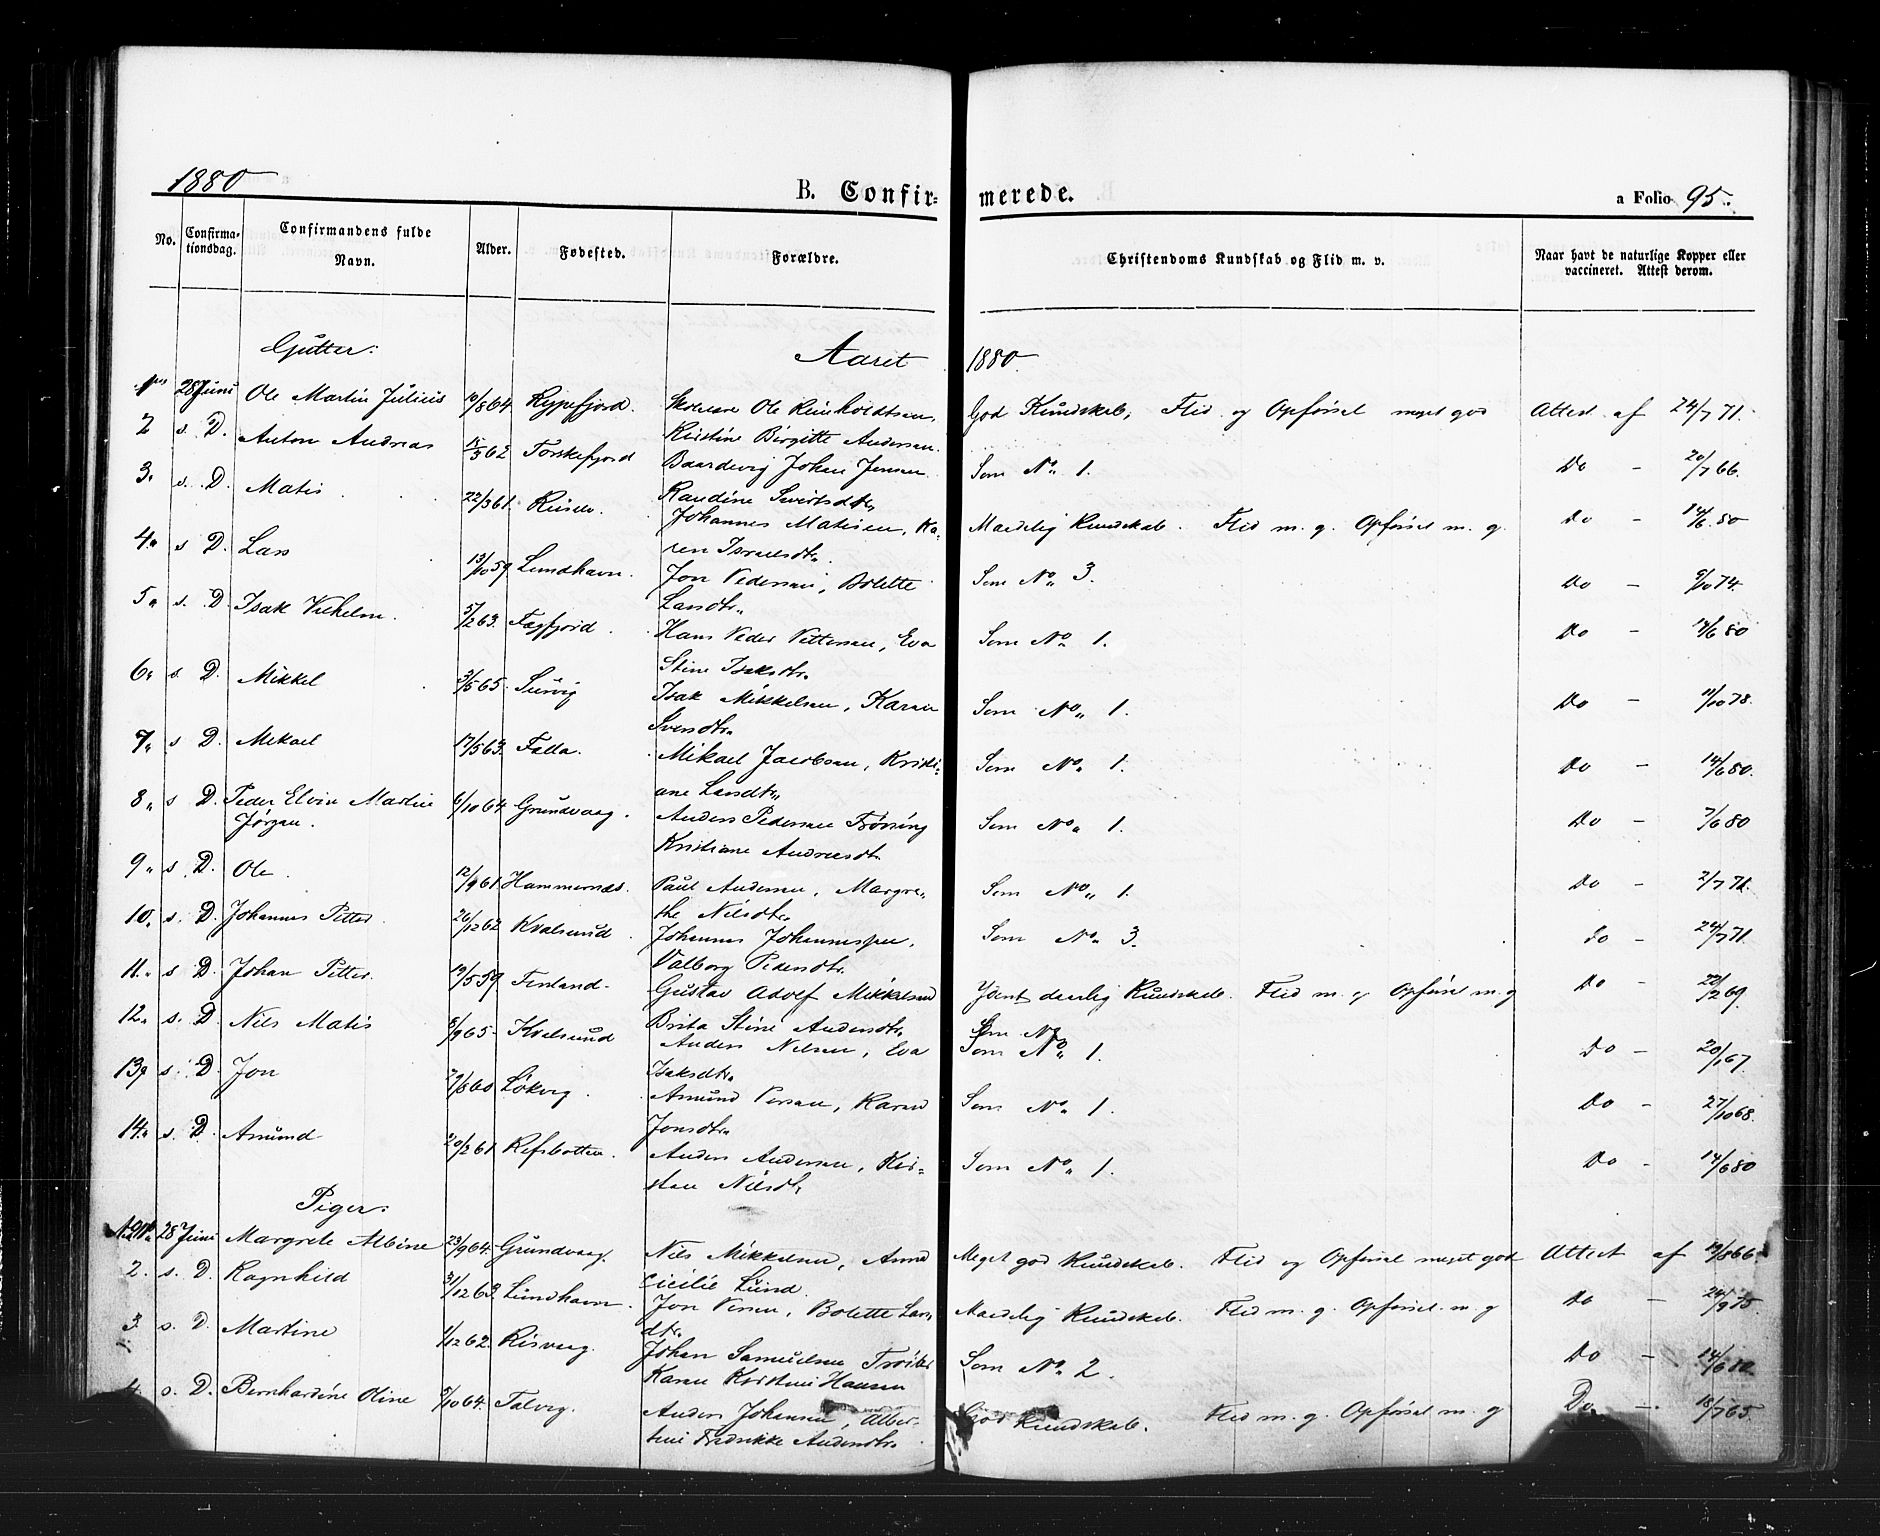 1880
B. Confir=
merede.
a Folio 95.
No.
Confirma-
tionsdag.
Confirmandens fulde
Navn.
Alder.
Fødested.
Forældre.
Christendoms Kundskab og Flid m. v.
Naar havt de naturlige Kopper eller
vaccineret. Attest derom.
Gutter:
Aaret
1880.
28 Juni Ole Martin Julius 10/8 64. Rypefjord. Ole Reinholdtsen, God Kundskab, Flid og Opførsel meget god Attest af 24/7 71.
Kirstine Birgitte Andersen.
2 s. D. Anton Andreas 62 Torskefjord Johan Jensen Som No 1. Do - 20/7 66.
Sivertsdtr.
3. s. D. Matis 22/3 61. Johannes Matisen, Ka- Maadelig Kundskab. Flid m. g. Opførsel m. g. Do - 14/6 80
ren Israelsdtr.
4. s D. Lars 13/10 59 Lundhavn. Jon Pedersen, Bolette Som No 3. Do - 9/10 74.
Larsdtr.
5. s. D. Isak Vilhelm. 5/2 63. Fægfjord. Hans Peder Pettersen, Eva Som No 1. Do - 14/6 80
Stine Isaksdtr.
6. s. D. Mikkel 3/5 65. Isak Mikkelsen, Karen Som No 1. Do - 11/10 78.
Svendtr.
7. s D. Mikael 17/5 63. Mikael Jacobsen, Kristi- Som No 1. Do - 14/6 80.
ane Larsdtr.
8. s D. Peder Elvin Martin 6/10 64 Grundvaag. Anders Pedersen Som No 1. Do - 7/6 80
Jørgen.
Kristiane Andreasdtr.
9. s. D. Ole. 12/9 61 Hammernæs. Paul Andersen, Margre- Som No 1. Do - 2/7 71.
the Nilsdtr.
10. s. D. Johannes Petter. 26/12 62 Kvalsund. Johannes Johannessen, Som No 3. do - 24/7 71.
Valborg Pedersdtr.
11. s D. Johan Petter. 19/5 59. Finland. Gustav Adolf Mikkelsen Kundskab. Flid m. g Opførsel m. g Do - 69.
Brita Stine Andersdtr.
12. s. D. Nils Matis 8/9 65. Kvalsund Anders Nilsen, Eva Som No 1. Do - 67.
Isaksdtr.
13. s. D. Jon 60 Amund Persen, Karen Som No 1. Do - 27/10 68.
Jonsdtr.
14. s. D. Amund 20/2 61 Refsbotten. Anders Andersen, Kir- Som No 1. Do - 14/6 80
sten Nilsdtr.
Piger:
28 Juni Margrete Albine 23/9 64. Grundvaag. Nils Mikkelsen, Anna Meget god Kundskab. Flid og Opførsel meget god Attest af 19/8 66.
Cicilie Lund.
2. s. D. Ragnhild 31/12 63. Lundhavn. Jon Persen, Bolette Lars- Maadelig Kundskab. Flid m. g. Opførsel m. g Do - 75.
dtr.
3. s. D. Martine 1/12 62. Risvaag. Johan Samuelsen Som No 2. Do - 14/6 80.
Karen Kirstine Hansen
4. s. D. Bernhardine Oline 9/10 64. Talvig. Anders Johansen, Alber- God Kundskab. Flid m. g. Opførsel m. g Do - 18/7 65.
tine Fredrikke Andersdtr.